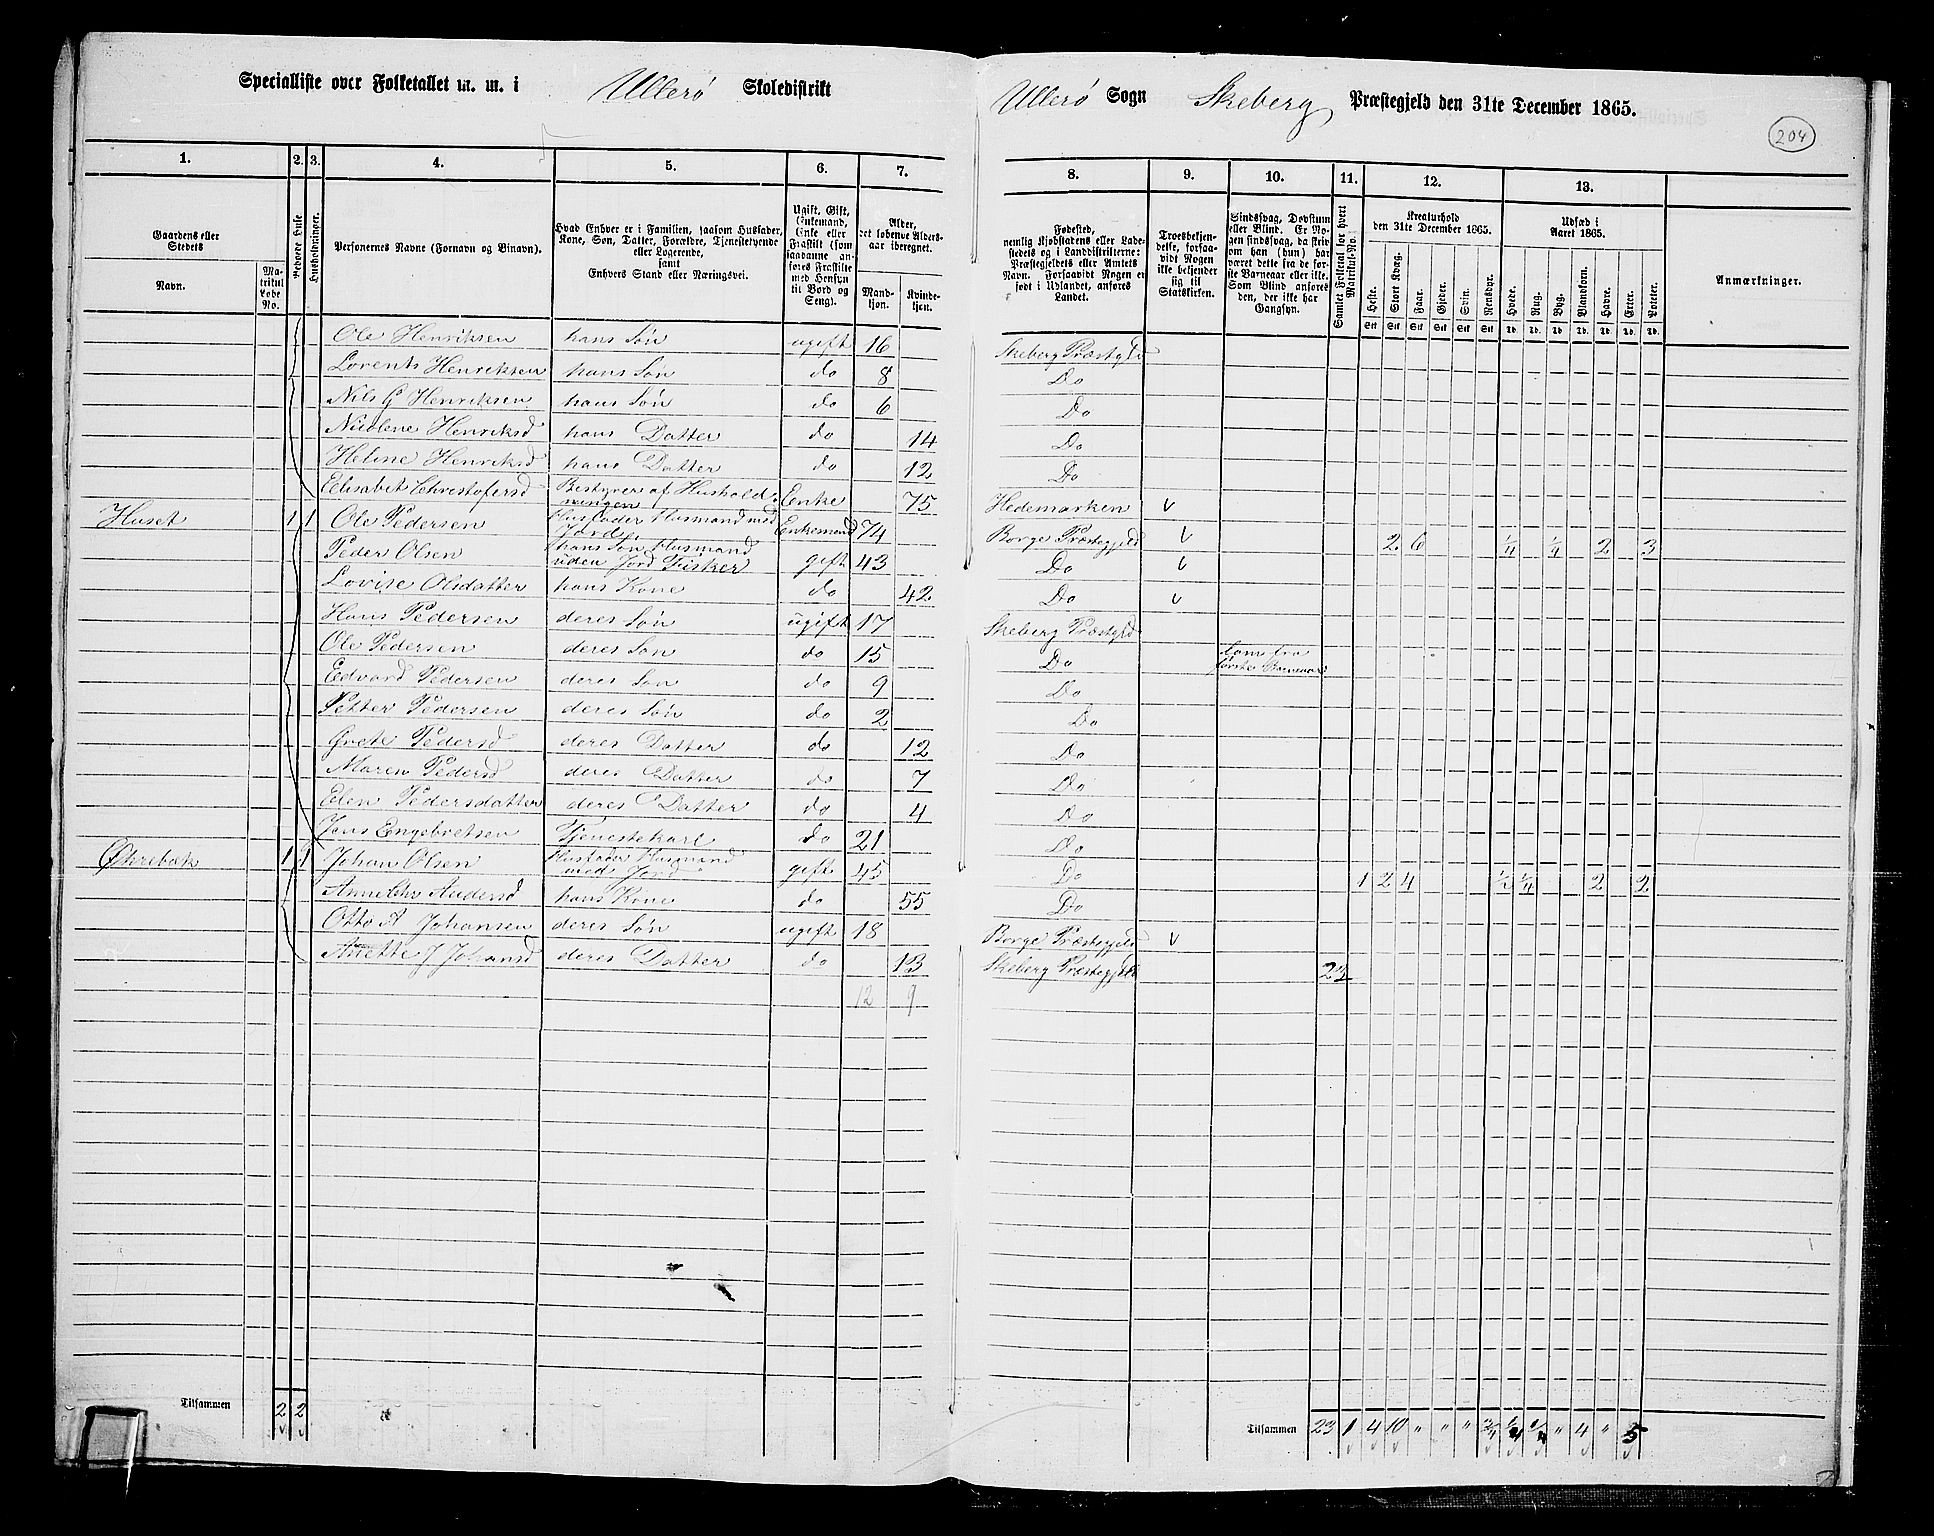 Specialliste over Folketallet m. m. i Ullerø Skoledistrikt Ullerø Sogn Skeberg Præstegjeld den 31te December 1865.
204
1. 2. 3. 4. 5. 6. 7. 8. 9. 10. 11. 12. 13.
Gaardens eller Stedets
Navn.
Matrikul Løbe No.
Beboede Huse.
Husholdninger.
Personernes Navne (Fornavn og Binavn).
Hvad Enhver er i Familien, saasom Husfader, Kone, Søn, Datter, Forældre, Tjenestetyende eller Logerende, samt Enhvers Stand eller Næringsvei.
Ugift, Gift, Enkemand, Enke eller Fraskilt (som saadanne anføres Fraskilte med Hensyn til Bord og Seng).
Alder, det løbende Alders-aar iberegnet.
Mandkjøn. Kvindekjøn.
Fødested, nemlig Kjøbstadens eller Ladestedets og i Landdistrikterne: Præstegjeldets eller Amtets Navn. Forsaavidt Nogen er født i Udlandet, anføres Landet.
Troesbekjendelse, forsaavidt Nogen ikke bekjender sig til Statskirken.
Sindssvag, Døvstum eller Blind. Er Nogen sindssvag, da skriv om han (hun) har været dette fra de første Barneaar eller ikke. Som Blind anføres den, der ikke har Gangsyn.
Samlet Folketal for hvert Matrikul-No.
Kreaturhold den 31te December 1865.
Heste. Stort Kvæg. Faar. Gjeder. Svin. Rensdyr.
Stk Stk Stk Stk Stk Stk
Udsæd i Aaret 1865.
Hvede. Rug. Byg. Blandkorn. Havre. Erter. Poteter.
Td. Td. Td. Td. Td. Td. Td.
Anmærkninger.
Ole Henriksen hans Søn ugift 16 Skeberg Præstgld
Lorents Henriksen hans Søn do 8 Do
Nils G Henriksen hans Søn do 6 Do
Nicolene Henriksd hans Datter do 14 Do
Heline Henriksd hans Datter do 12 Do
Elisabet Christofersd Bestyrer af Husholdningen Enke 75 Hedemarken v
Huset 1 1 Ole Pedersen Husfader Husmand med Jord Enkemand 74 Borge Præstegjeld v 2 6 1/4 1/4 2 3
Peder Olsen hans Søn Husmand uden Jord Fisker gift 43 Do v
Lovise Olsdatter hans Kone do 42 Do v
Hans Pedersen deres Søn ugift 17 Skeberg Præstgld
Ole Pedersen deres Søn do 15 Do første Barneaar
Edvard Pedersen deres Søn do 9 Do
Petter Pedersen deres Søn do 2 Do
Grete Pedersd deres Datter do 12 Do
Maren Pedersd deres Datter do 7 Do
Elen Pedersdatter deres Datter do 4 Do
Jens Engebretsen Tjenestekarl do 21 Do
Økrebæk 1 1 Johan Olsen Husfader Husmand med Jord gift 45 Do 1 2 4 1/2 1/4 2 2
Anne Chr Andersd hans Kone do 55 Do
Otto A Johansen deres Søn ugift 18 Borge Præstegjeld v
Anette J Johansd deres Datter do 13 Skeberg Præstegjeld 23
12 9
Tilsammen 2 2 Tilsammen 23 1 4 10 " " " 3/4 1/4 1/4 " 4 " 5